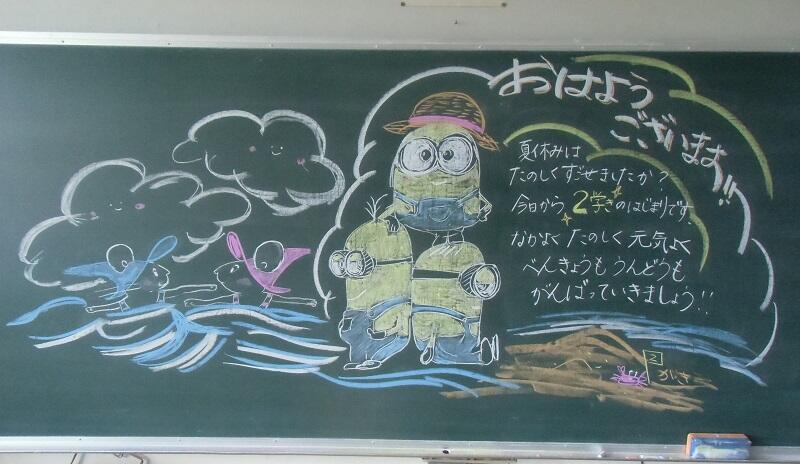 おはよう
ございます!!
夏休みは
たのしくすごせましたか?
今日から2学きのはじまりです。
なかよくたのしく元気よく
べんきょうもうんどうも
がんばっていきましょう!!
2